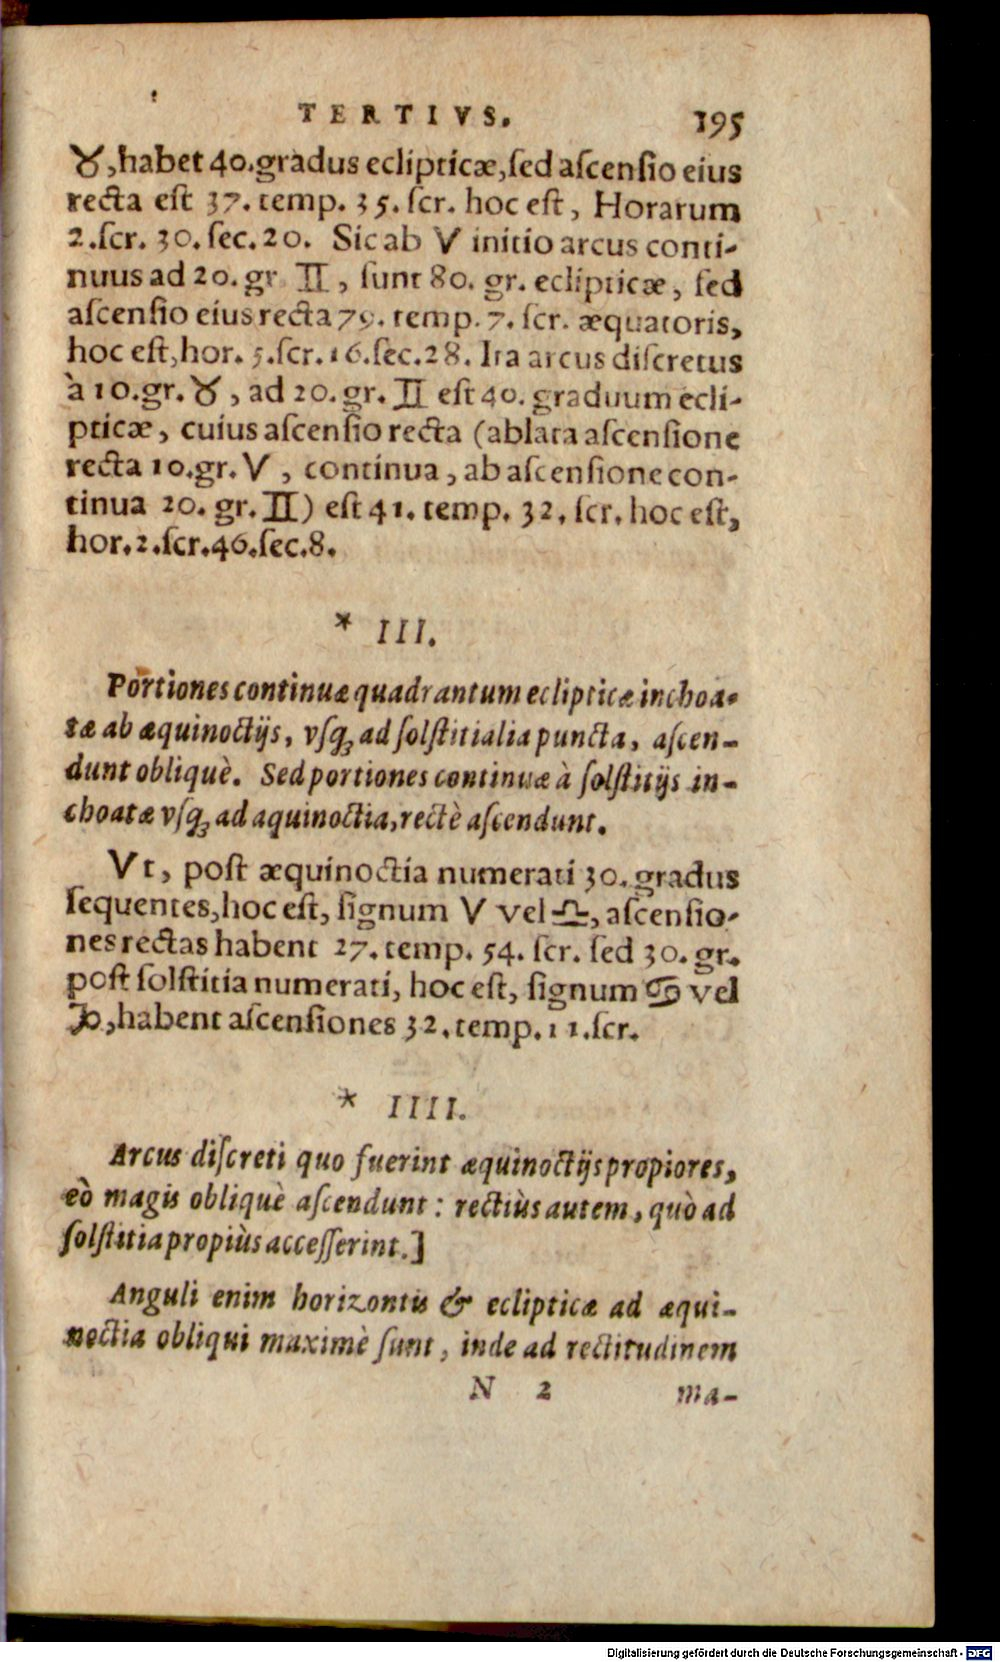 TERTIVS. 195
♉,habet 40.gradus eclipticæ,sed ascensio eius
recta est 37. temp. 35. scr. hoc est, Horarum
2.scr. 30. sec. 20. Sic ab ♈ initio arcus conti-
nuus ad 20. gr. ♊, sunt 80. gr. eclipticæ, sed
ascensio eius recta 79. temp. 7. scr. æquatoris,
hoc est,hor. 5.scr.16.sec.28. Ita arcus discretus
à 10.gr. ♉, ad 20. gr. ♊ est 40. graduum ecli-
pticæ, cuius ascensio recta (ablata ascensione
recta 10.gr. ♈, continua, ab ascensione con-
tinua 20. gr. ♊) est 41. temp. 32. scr. hoc est,
hor.2.scr.46.sec.8.
* III.
Portiones continuæ quadrantum eclipticæ inchoa-
tæ ab æquinoctijs, vsq; ad solstitialia puncta, ascen-
dunt obliquè. Sed portiones continuæ à solstitijs in-
choatæ vsq; ad aquinoctia, rectè ascendunt.
Vt, post æquinoctia numerati 30. gradus
sequentes,hoc est, signum ♈ vel ♎, ascensio-
nes rectas habent 27. temp. 54. scr. sed 30. gr.
post solstitia numerati, hoc est, signum ♋ vel
♑,habent ascensiones 32. temp. 11.scr.
* IIII.
Arcus discreti quo fuerint æquinoctijs propiores,
eò magis obliquè ascendunt: rectiùs autem, quò ad
solstitia propiùs accesserint.]
Anguli enim horizontis & eclipticæ ad æqui-
noctia obliqui maximè sunt, inde ad rectitudinem
N 2 ma-
Digitalisierung gefördert durch die Deutsche Forschungsgemeinschaft - DFG